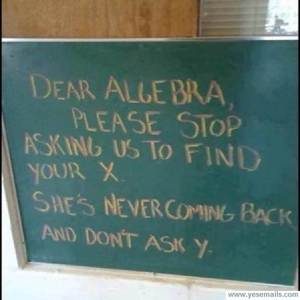 DEAR ALGEBRA,
PLEASE STOP
ASKING US TO FIND
YOUR X.
SHE'S NEVER COMING BACK
AND DON'T ASK Y.
www.yesemails.com